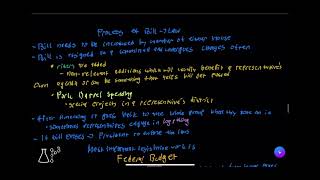 Process of Bill → Law
- Bill needs to be introduced by member of either house
- Bill is assigned to a committee and undergoes changes often
• riders are added
- Non-relevant additions which will usually benefit a representative's
own agenda or can be something that makes Bill
• Pork Barrel Spending
- special projects in a representative's district
- After finalizing it goes back to the whole group
- sometimes representatives engage in logrolling
- If bill passes → President to
Most important legislative work is
Federal Budget